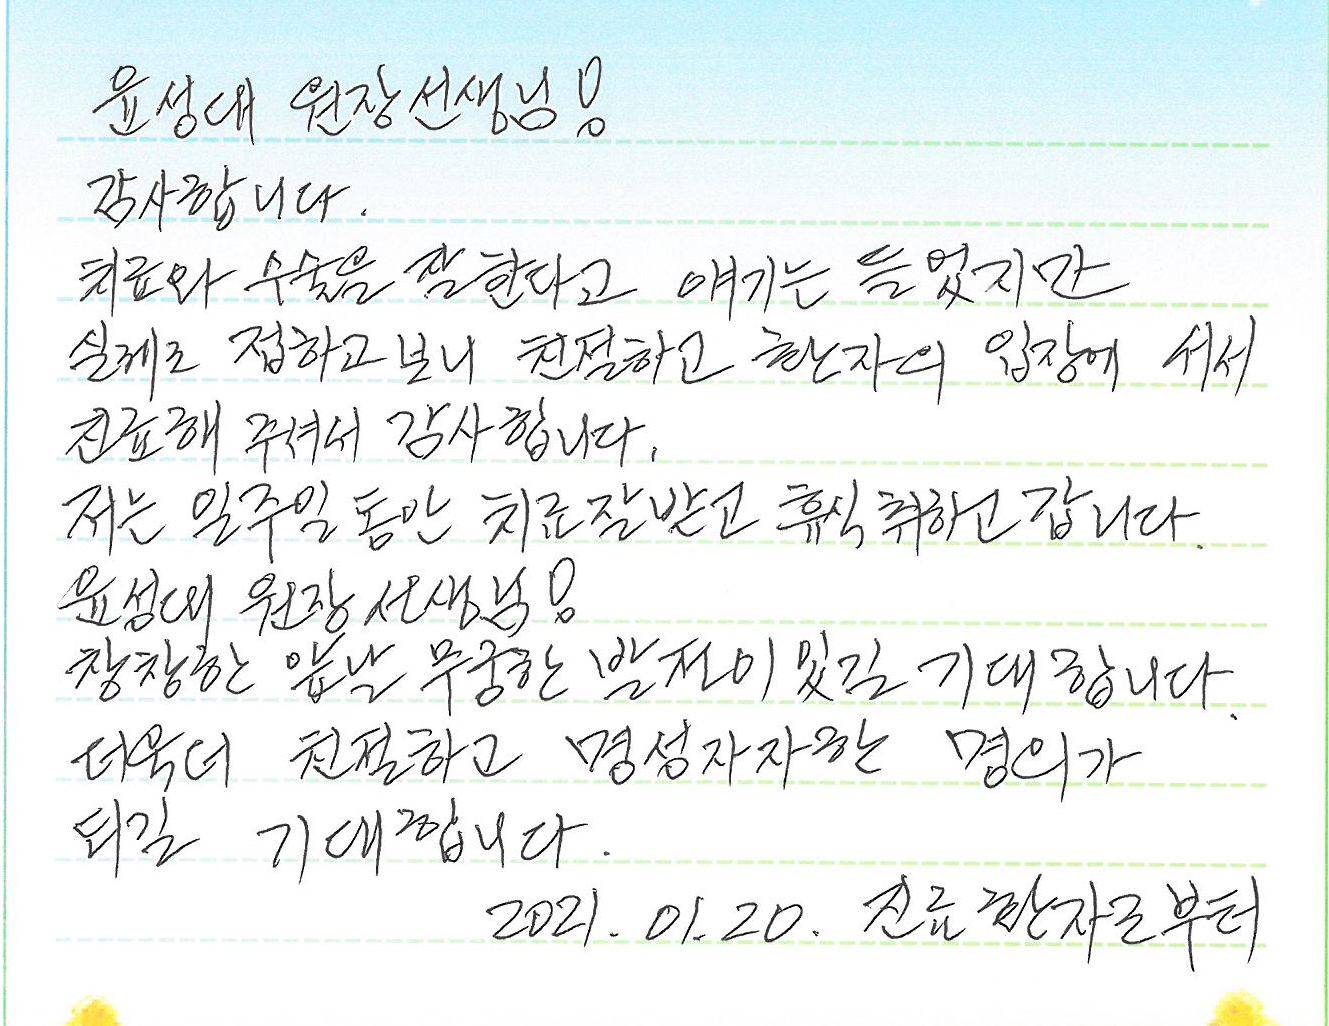 윤성대 원장선생님!
감사합니다.
치료와 수술을 잘한다고 얘기는 들었지만
실제로 접하고보니 친절하고 환자의 입장에 서서
진료해 주셔서 감사합니다.
저는 일주일 동안 치료잘받고 휴식 취하고 갑니다.
윤성대 원장선생님!
창창한 앞날 무궁한 발전이 있길 기대합니다.
더욱더 친절하고 명성자자한 명의가
되길 기대합니다.
2021. 01. 20. 진료환자로부터